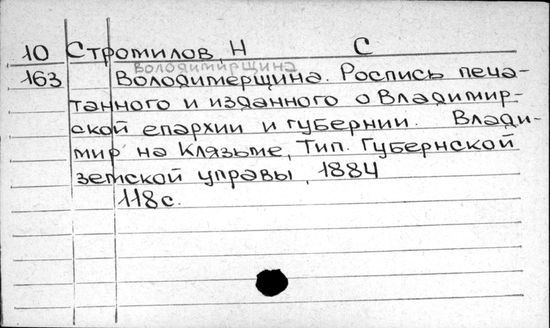 10 Стромилов, Н С
Володимирщина
163 Володимерщина. Роспись печа-
танного и изданного о Владимир-
ской епархии и губернии. Влади-
мир на Клязьме, Тип. Губернской
земской управы, 1884
118с.